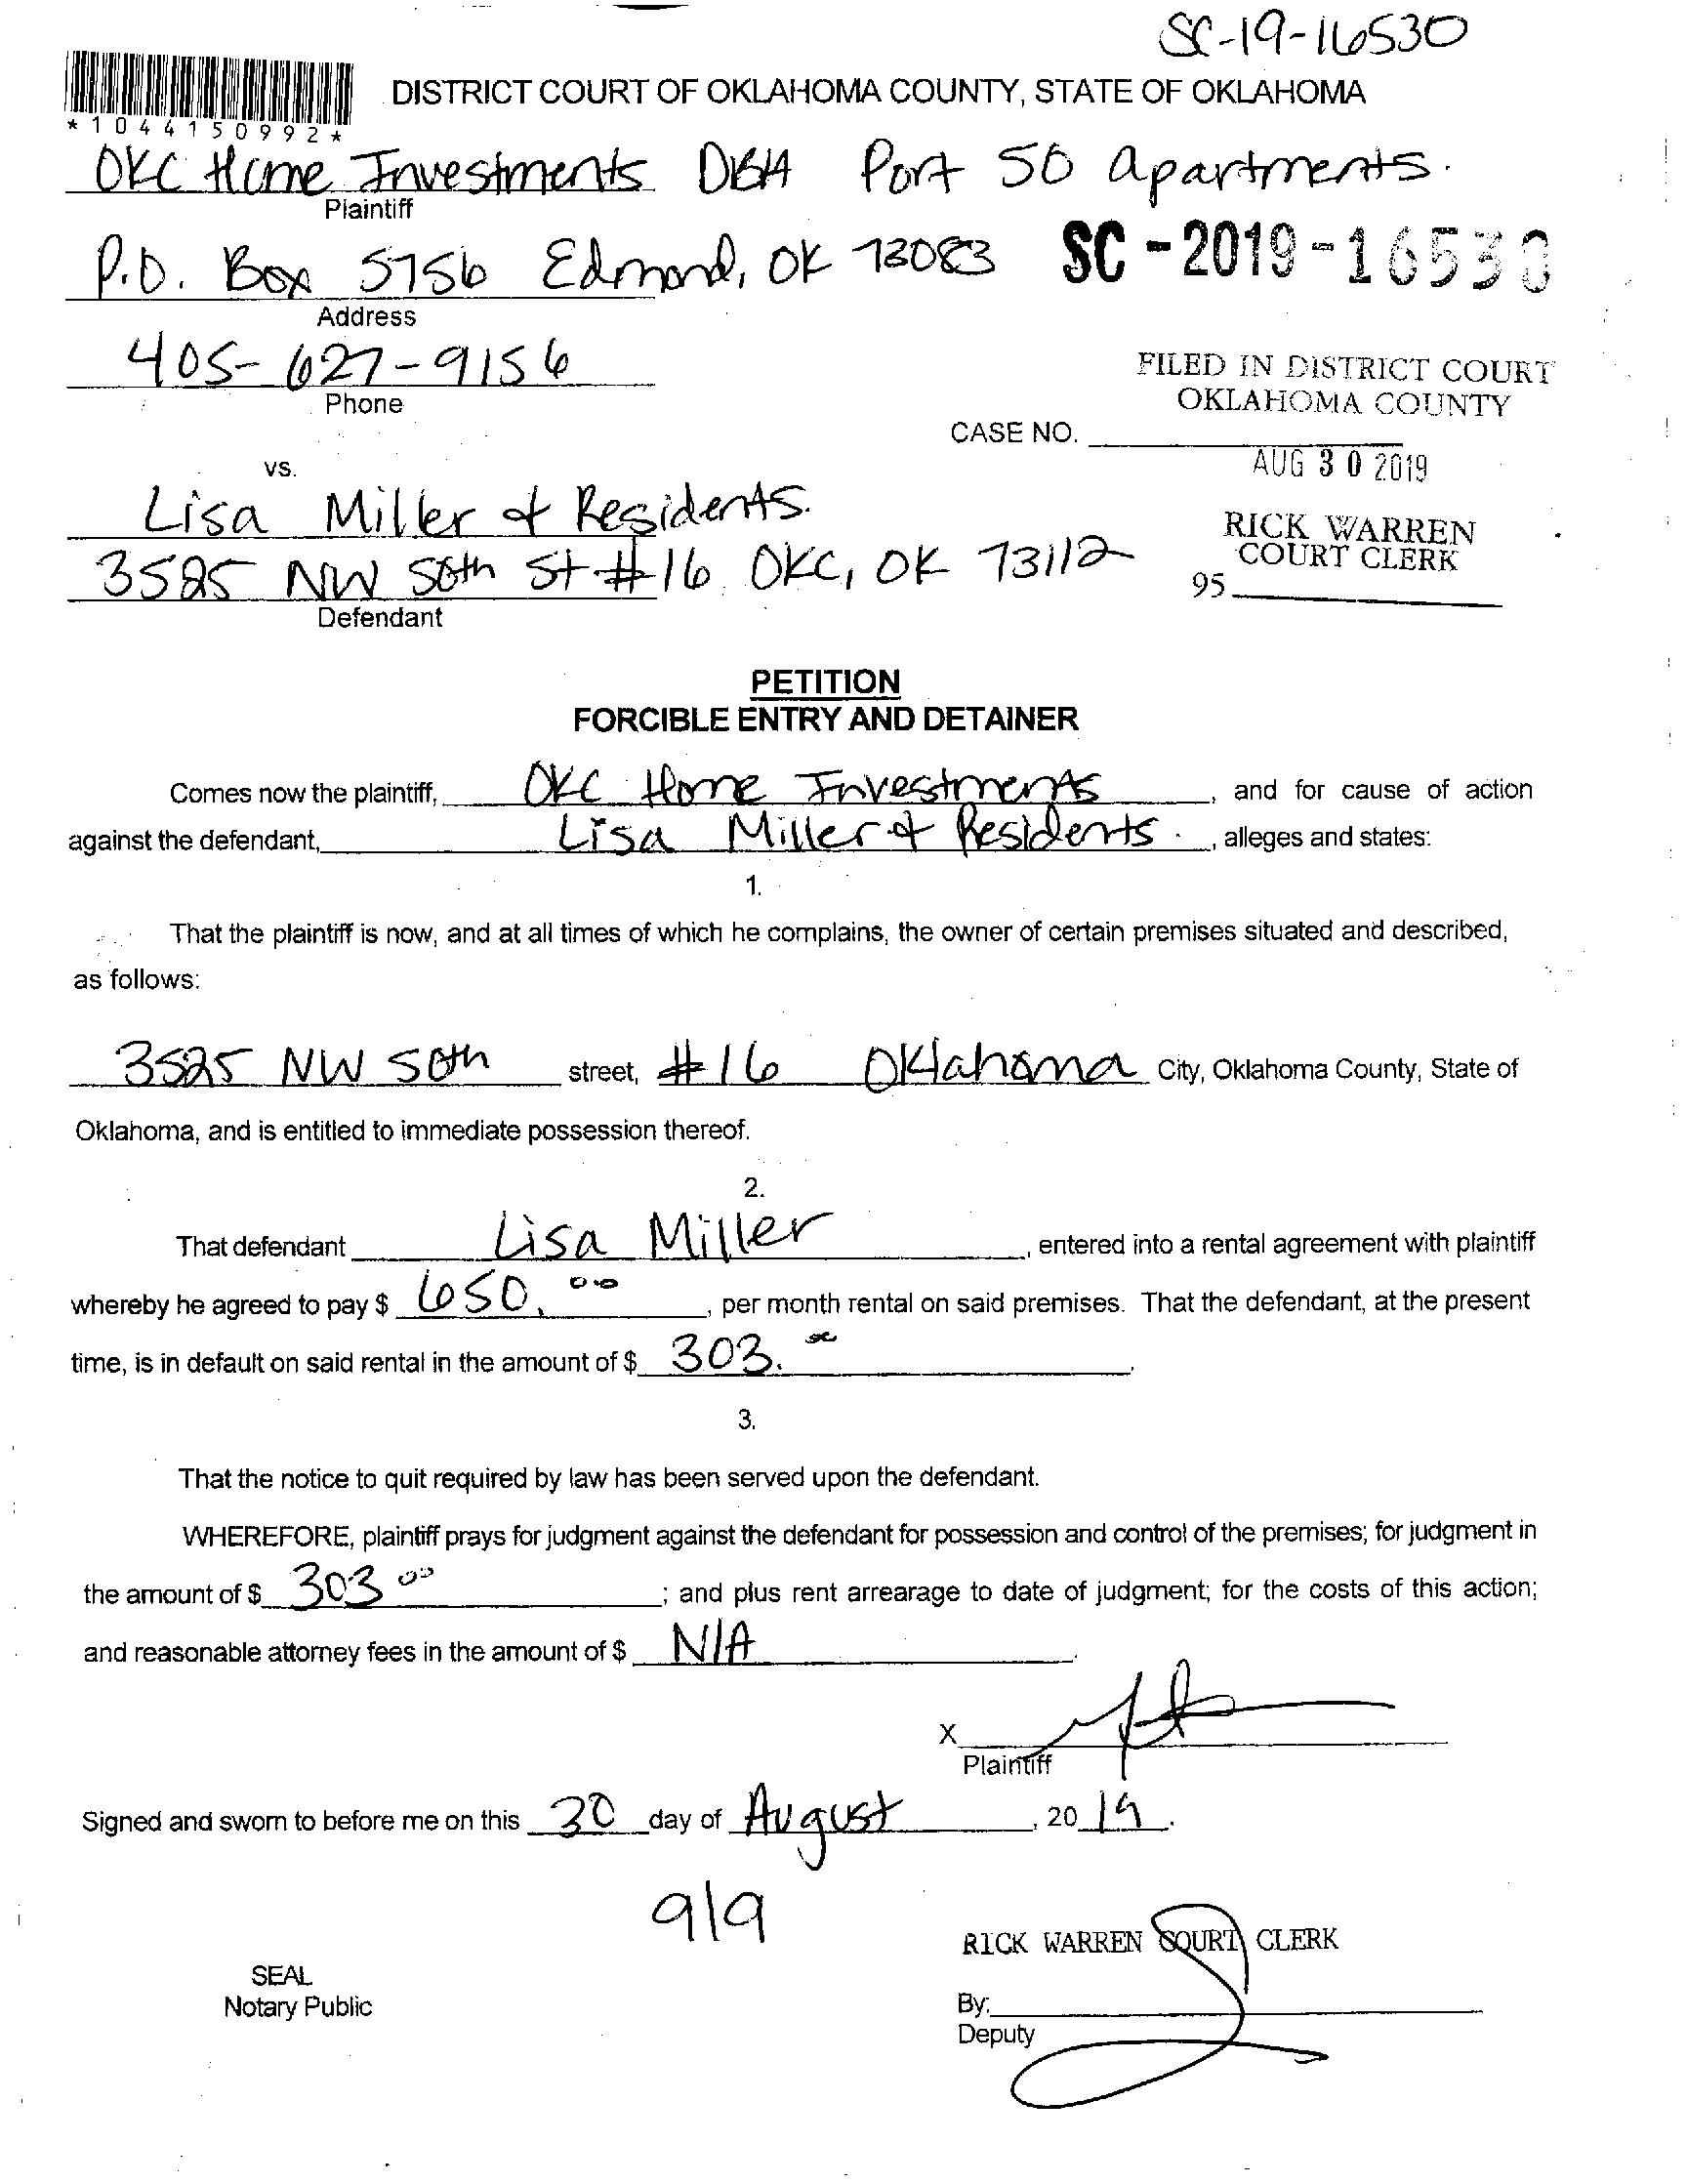 SC-19-16530
DISTRICT COURT OF OKLAHOMA COUNTY, STATE OF OKLAHOMA
*1044150992*
OKC Home Investments DBA Port 50 apartments.
Plaintiff
P.O. Box 5756 Edmond, OK 73083
SC-2019-16530
Address
405-627-9156
Phone
FILED IN DISTRICT COURT
OKLAHOMA COUNTY
CASE NO.
AUG 30 2019
vs.
Lisa Miller & Residents.
RICK WARREN
COURT CLERK
3525 NW 50th St #16 OKC, OK 73112
95
Defendant
PETITION
FORCIBLE ENTRY AND DETAINER
Comes now the plaintiff, OKC Home Investments, and for cause of action
against the defendant, Lisa Miller & Residents., alleges and states:
1.
That the plaintiff is now, and at all times of which he complains, the owner of certain premises situated and described,
as follows:
3525 NW 50th street, #16 Oklahoma City, Oklahoma County, State of
Oklahoma, and is entitled to immediate possession thereof.
2.
That defendant Lisa Miller, entered into a rental agreement with plaintiff
whereby he agreed to pay $ 650.00, per month rental on said premises. That the defendant, at the present
time, is in default on said rental in the amount of $ 303.00.
3.
That the notice to quit required by law has been served upon the defendant.
WHEREFORE, plaintiff prays for judgment against the defendant for possession and control of the premises; for judgment in
the amount of $ 303 00; and plus rent arrearage to date of judgment; for the costs of this action;
and reasonable attorney fees in the amount of $ N/A.
X
Plaintiff
Signed and sworn to before me on this 30 day of August, 20 19.
9/9
RICK WARREN COURT CLERK
SEAL
Notary Public
By:
Deputy